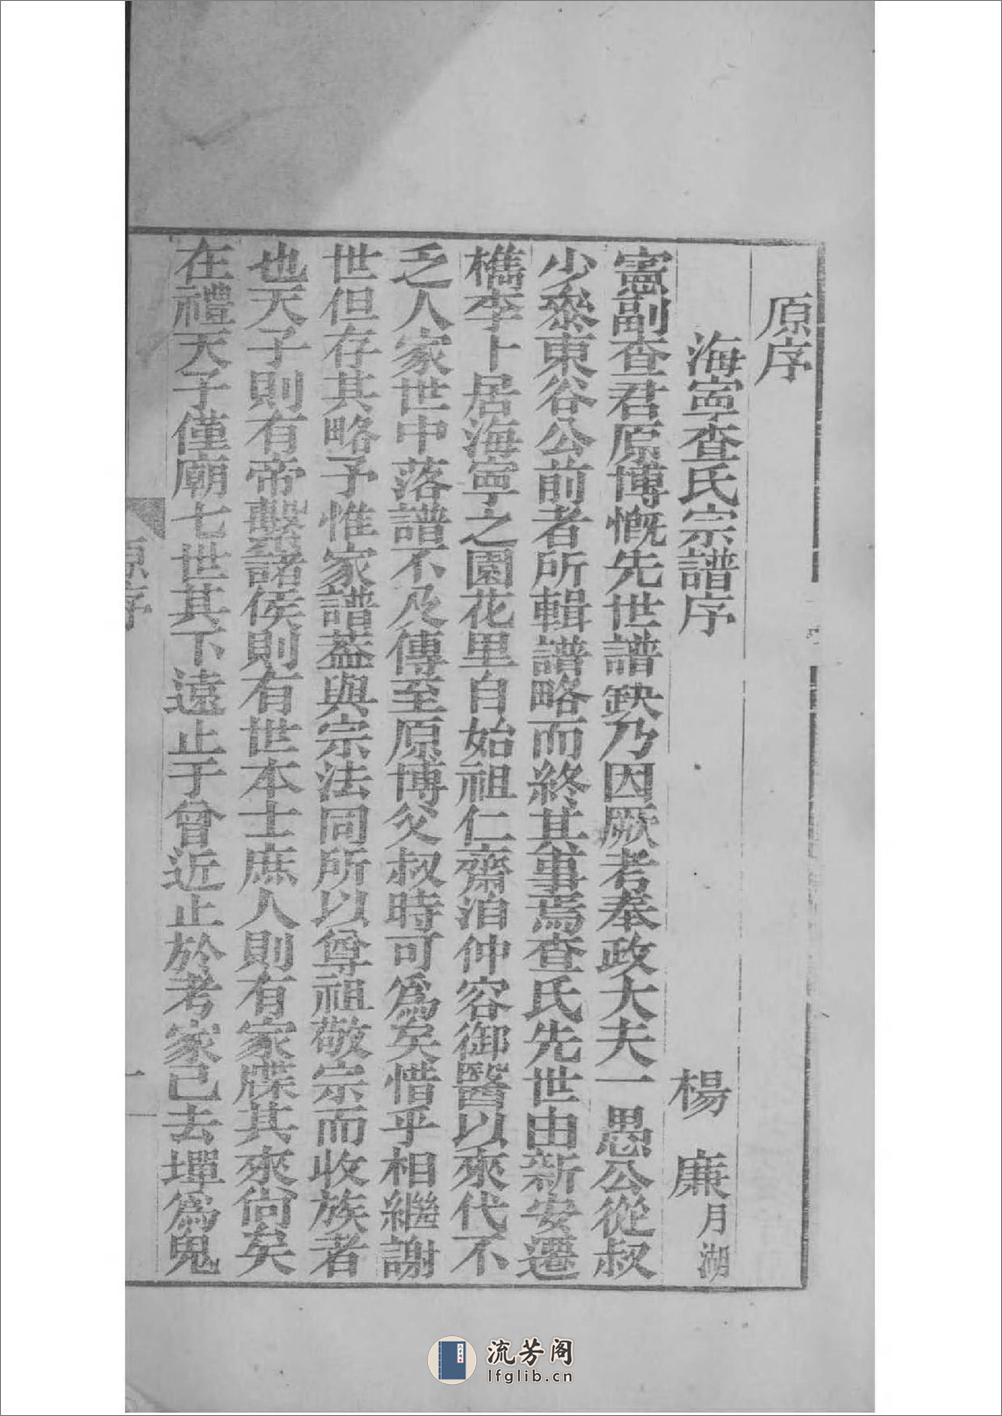 原序
海寧查氏宗譜序
楊 廉月湖
憲副查君原博慨先世譜缺乃因厥考奉政大夫一愚公從叔
少叅東谷公前者所輯譜略而終其事焉查氏先世由新安遷
檇李卜居海寧之園花里自始祖仁齋洎仲容御醫以來代不
乏人家世中落譜不及傳至原博父叔時可為矣惜乎相繼謝
世但存其略予惟家譜蓋與宗法同所以尊祖敬宗而收族者
也天子則有帝繫諸侯則有世本士庶人則有家牒其來尚矣
在禮天子僅廟七世其下遠止于曾近止於考家已去墠為鬼
原序
一
流芳阁
lfglib.cn